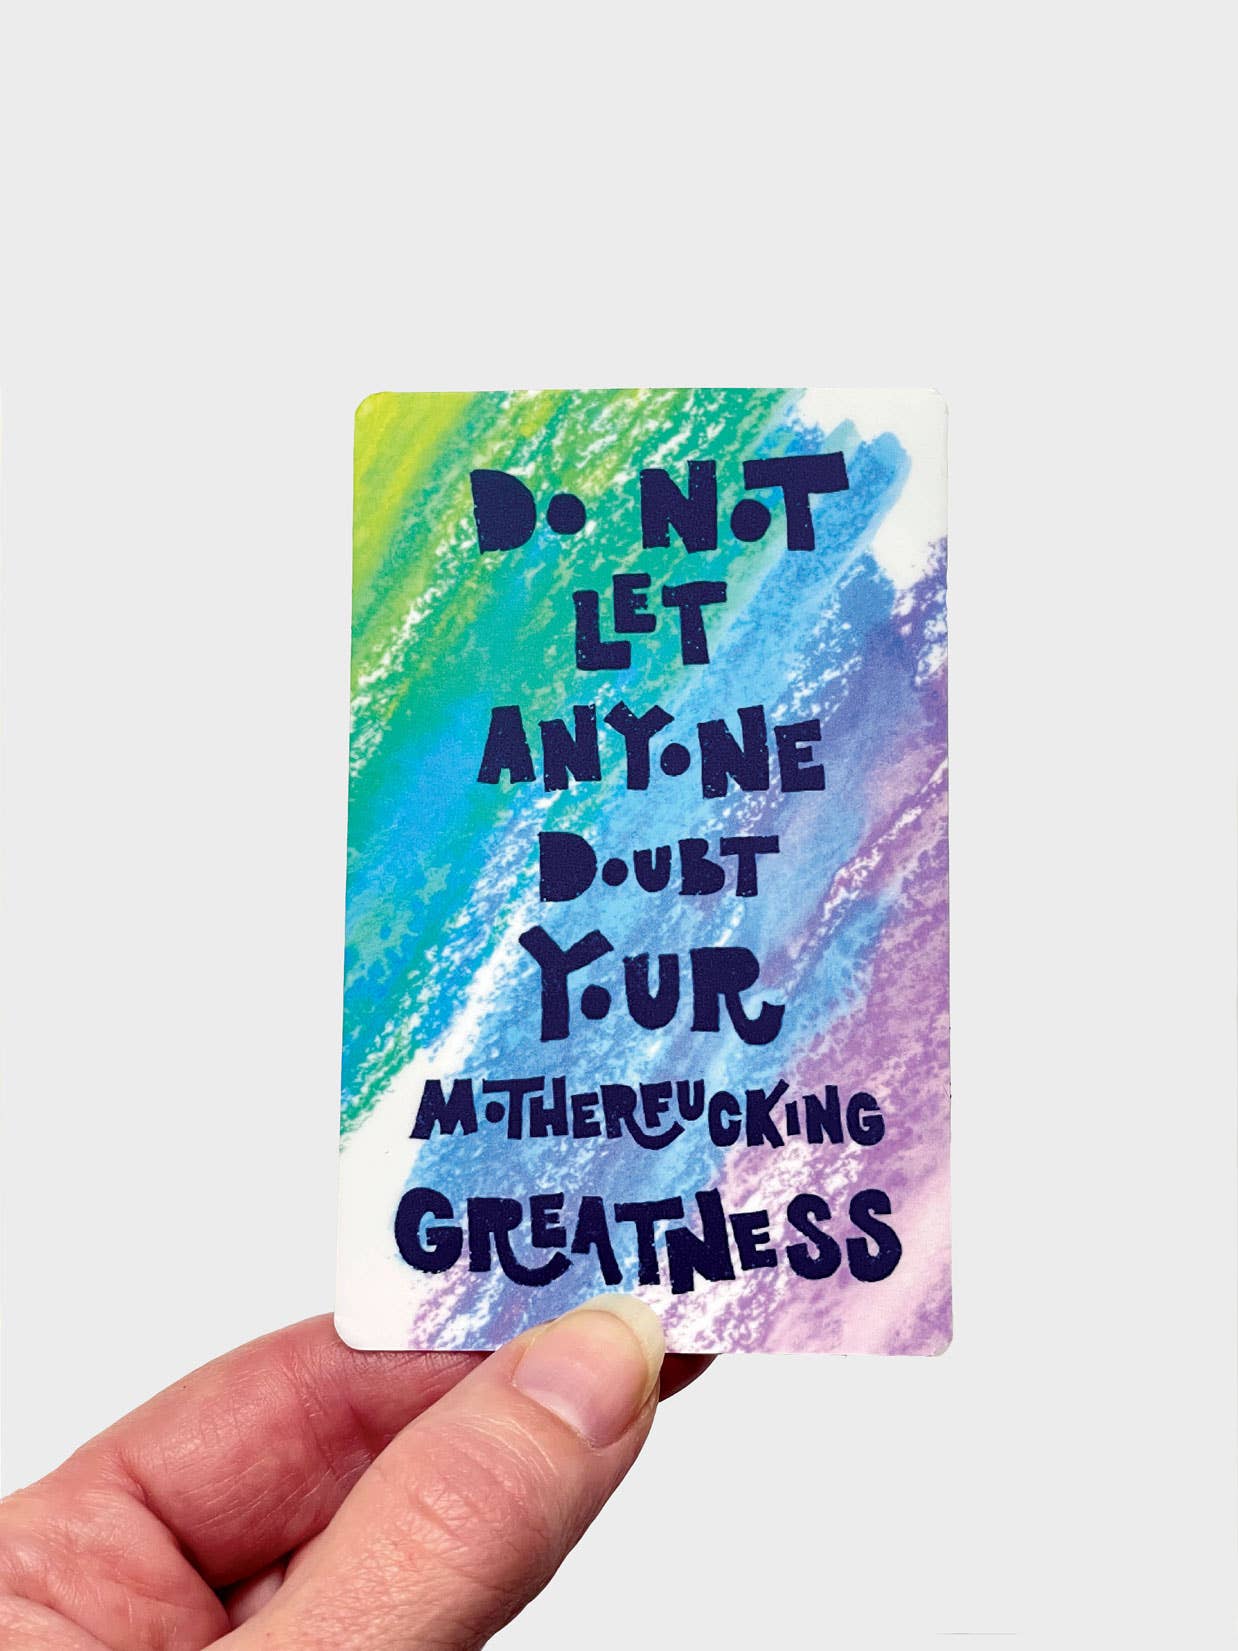 DO NOT
LET
ANYONE
DOUBT
YOUR
MOTHERFUCKING
GREATNESS